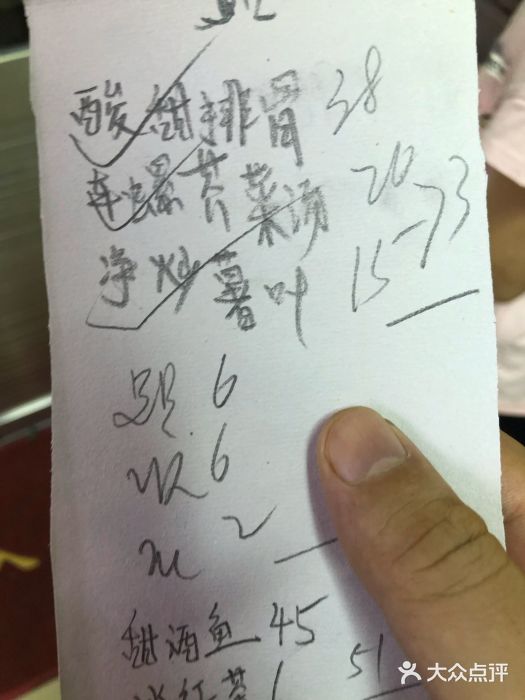 酸甜排骨 38
车螺芥菜汤 20
净炒薯叶 15 - 73
6
收 6
2
甜酒鱼 45
冰红茶 6 51
大众点评